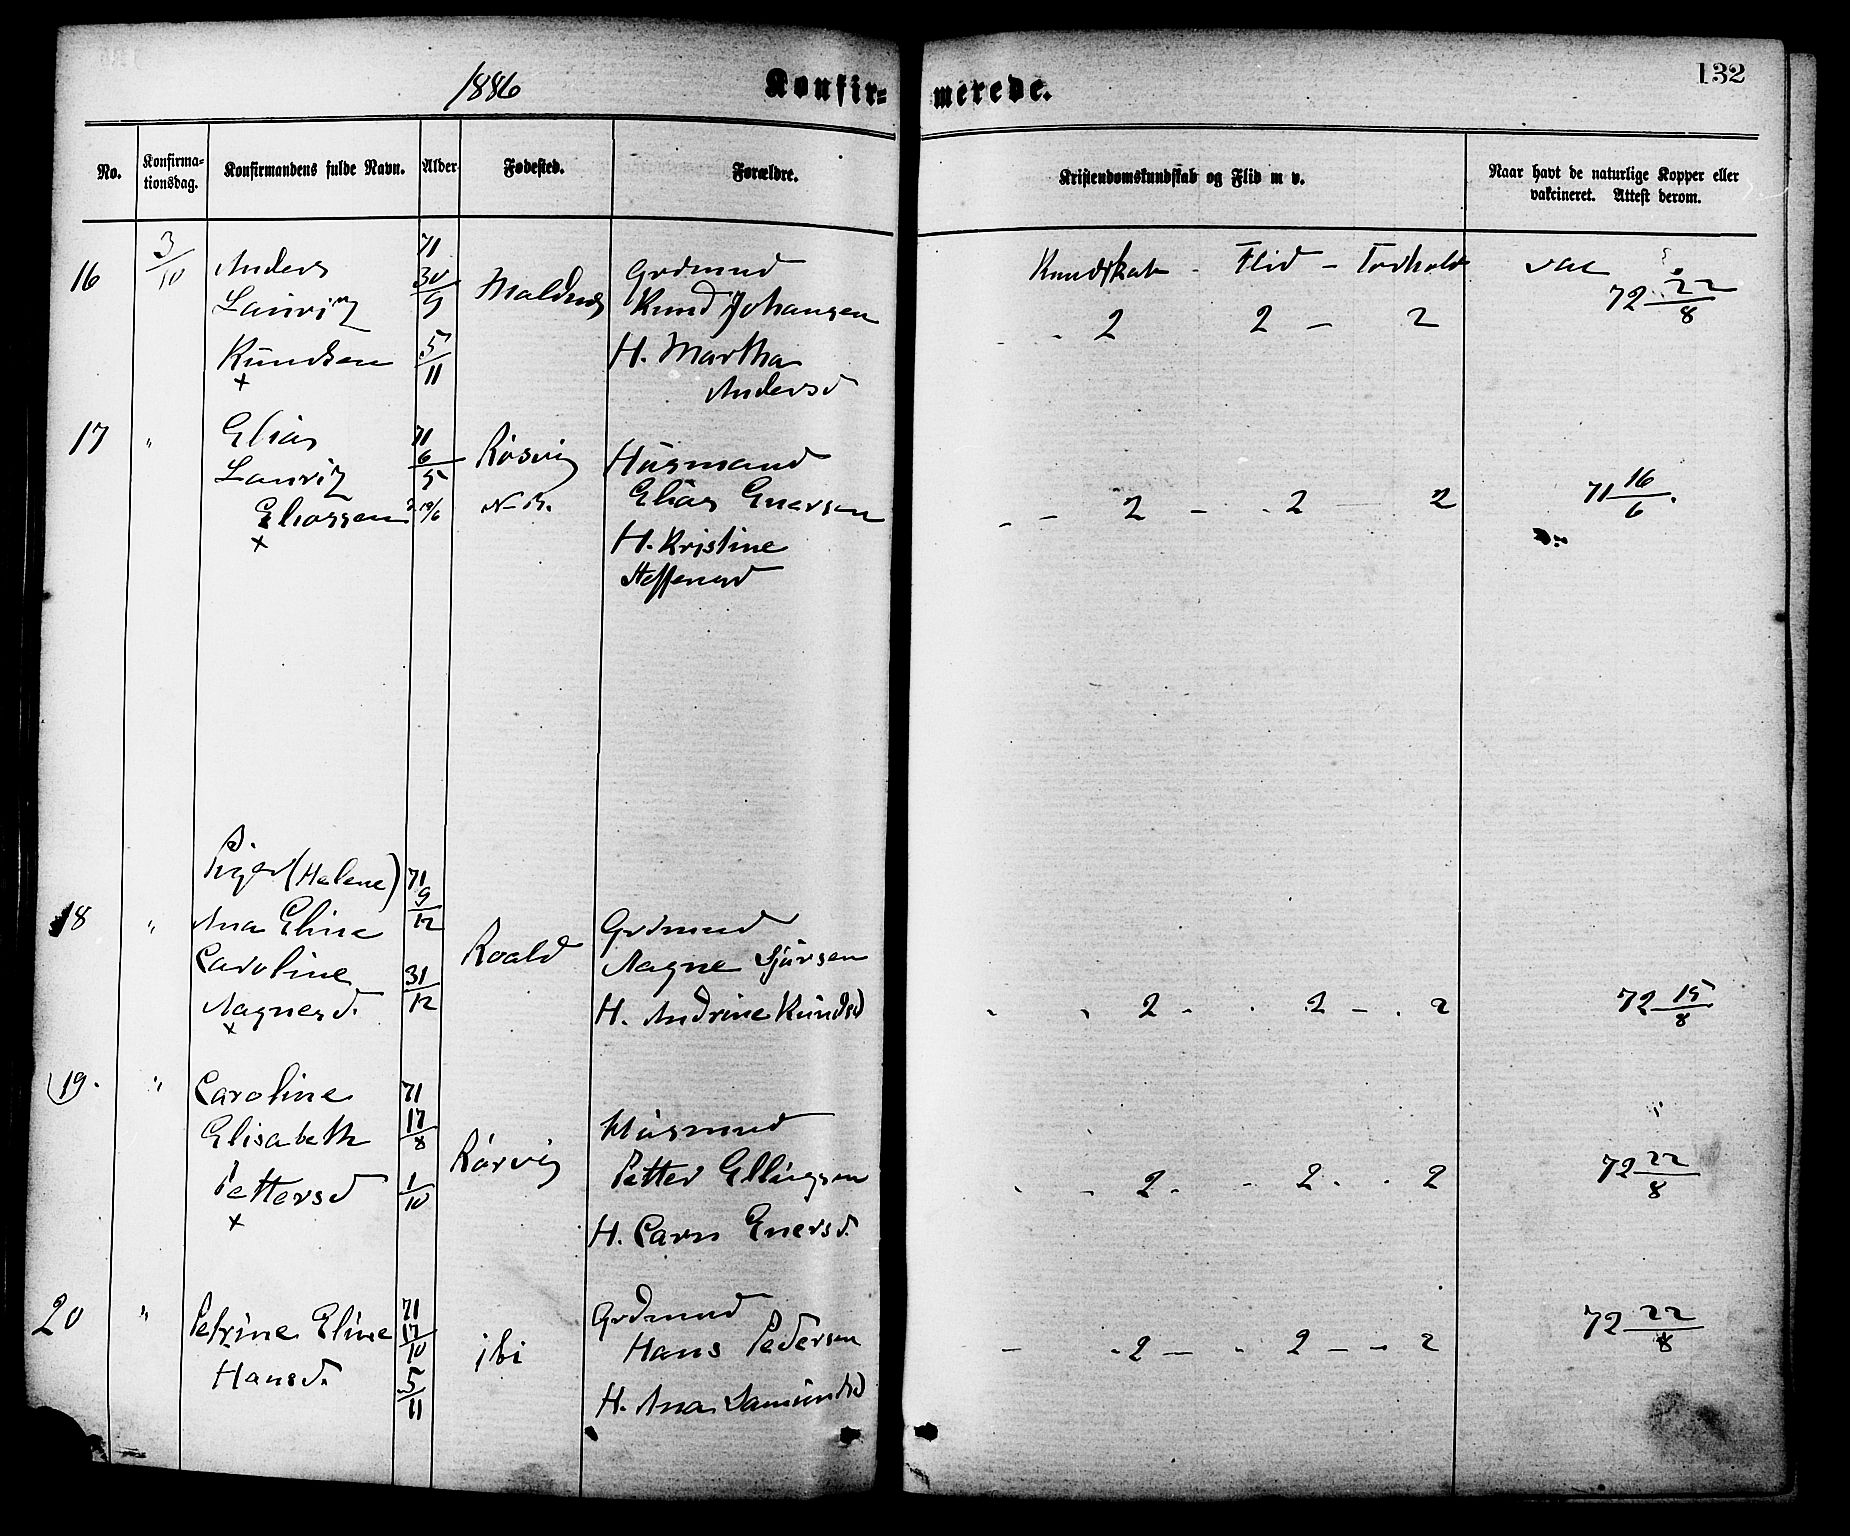 1886
Konfir=
merede.
132
No.
Konfirma-
tionsdag.
Konfirmandens fulde Navn.
Alder
Fødested.
Forældre.
Kristendomskundskab og Flid m v.
Naar havt de naturlige Kopper eller
vakcineret. Attest derom.
16
3/10
Anders
Lauritz
Knudsen
x
71
30/9
5/11
Maldnes
Grdmnd
Knud Johansen
H. Martha
Andersd
Kundskab - Flid - Forhold
2 2 - 2
vac
72 22/8
17
"
Elias
Lauritz
Eliassen
x
71
6/5
19/6
Røsvig
N. B.
Husmand
Elias Enersen
H. Kristine
Steffensd
- - 2 - 2 2
71 16/6
Piger (Helene)
18
"
Ana Eline
Caroline
Aagnesd.
x
71
9/12
31/12
Roald
Grdmnd
Aagne Sjursen
H. Andrine Knudsd
2 - 2 - 2
72 15/8
19.
"
Caroline
Elisabeth
Pettersd
x
71
17/8
1/10
Rørvig
Husmnd
Petter Ellingsen
H. Carn Enersd.
- 2 - 2 2
72 22/8
20
"
Petrine Eline
Hansd.
71
17/10
5/11
ibi
Grdmnd
Hans Pedersen
H. Ana Samundsd
- 2 - 2 - - 2
72 22/8